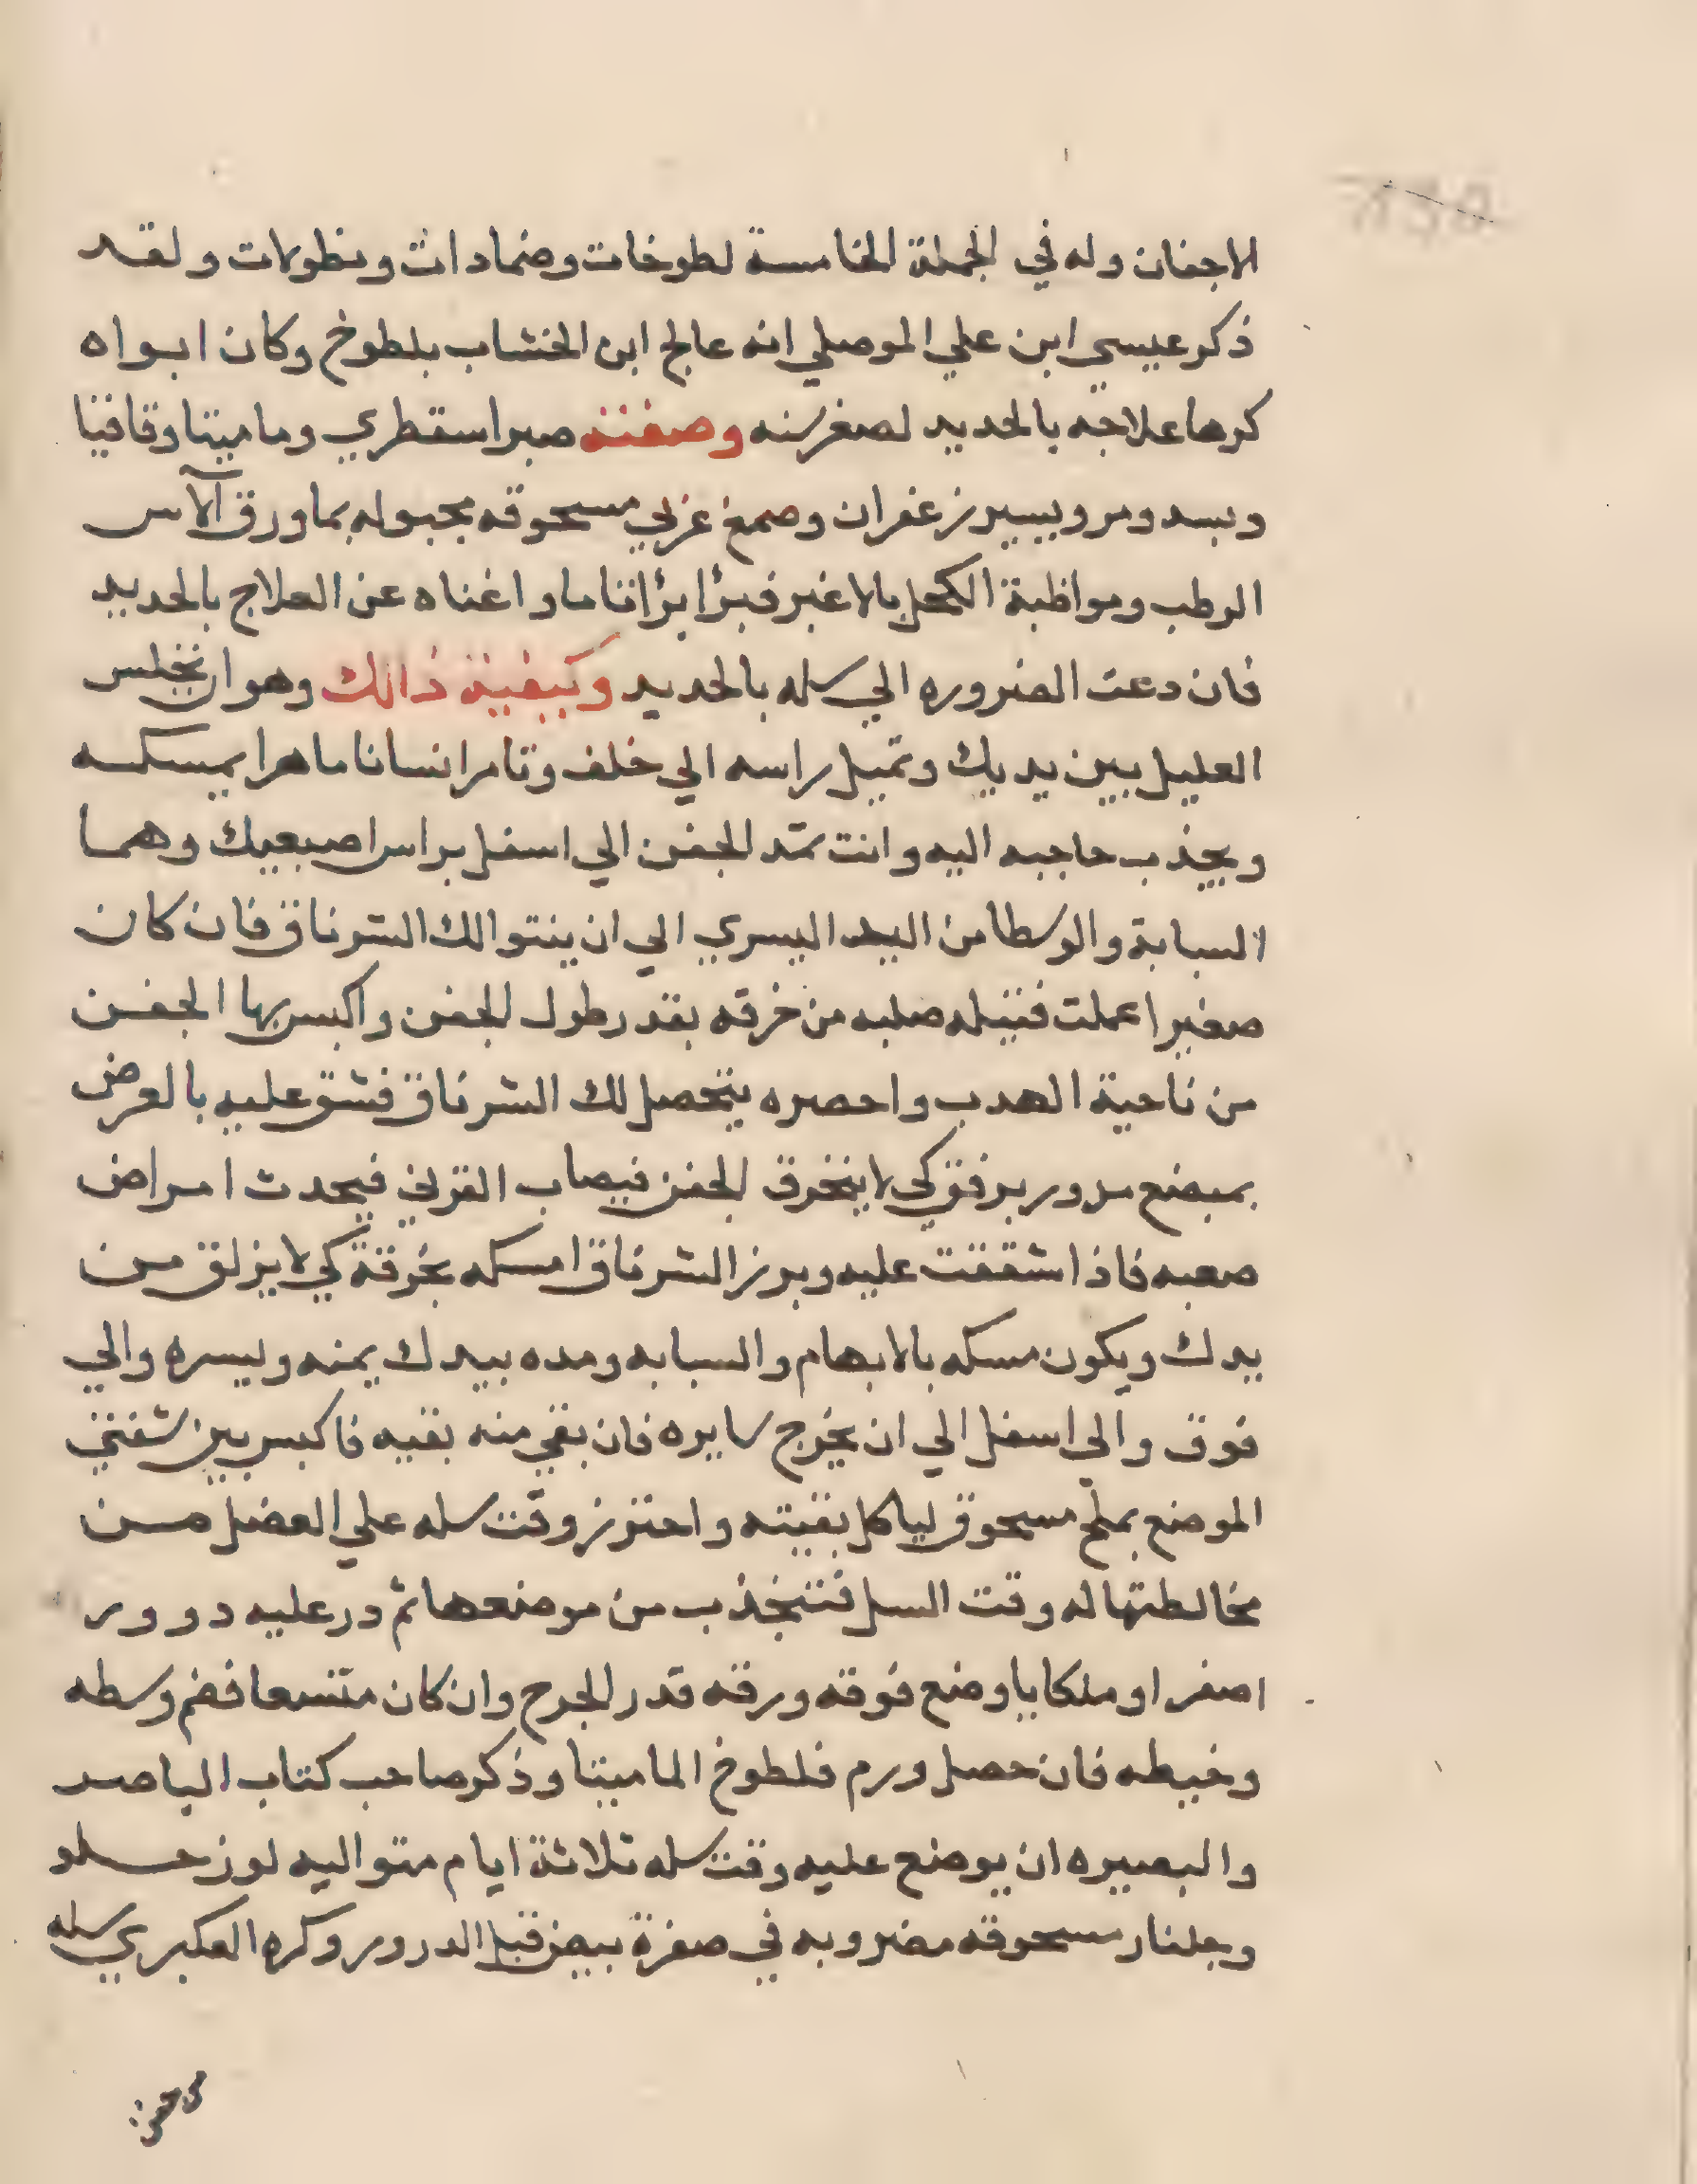 الاجفان وله في الجملة الخامسة لطوخات وضمادات ونطولات ولقد
ذكر عيسي ابن علي الموصلي انه عالج ابن الخشاب بلطوخ وكان ابواه
كرها علاجه بالحديد لصغر سنه وصفته صبر اسقطري وماميتا وقاقيا
وبسد ومر ويسير زعفران وصمغ عربي مسحوقه مجبوله بما ورق الآس
الرطب ومواظبة الكحل بالاغبر فبرأ برأ تاما واغناه عن العلاج بالحديد
فان دعت الضروره الي سله بالحديد وكيفية ذالك وهو ان تجلس
العليل بين يديك وتميل راسه الي خلف وتامر انسانا ماهرا يمسكه
ويجذب حاجبه اليه وانت تمد الجفن الي اسفل براس اصبعيك وهما
السبابة والوسطا من اليد اليسري الي ان ينتوا لك الشرناق فان كان
صغيرا عملت فتيله صلبه من خرقه بقدر طول الجفن واكبس بها الجفن
من ناحية الهدب واحصره يتحصل لك الشرناق فشق عليه بالعرض
بمبضع مدور برفق كي لا ينخرق الجفن فيصاب القرني فيحدث امراض
صعبه فاذا شققت عليه وبرز الشرناق امسكه بخرقة كي لا يزلق من
يدك ويكون مسكه بالابهام والسبابه ومده بيدك يمنه ويسره والي
فوق والى اسفل الي ان يخرج سايره فان بقي منه بقيه فاكبس بين شفتي
الموضع بملح مسحوق لياكل بقيته واحترز وقت سله علي العضل من
مخالطتها له وقت السل فتنجذب من موضعها ثم در عليه دوور
اصفر او ملكايا وضع فوقه ورقه قدر الجرح وان كان متسعا فضم وسطه
وخيطه فان حصل ورم فلطوخ الماميتا وذكر صاحب كتاب الباصر
والبصيره ان يوضع عليه وقت سله ثلاثة ايام متواليه لوز حلو
وجلنار مسحوقه مضروبه في صفرة بيض قبل الدرور وكره العكبري سله